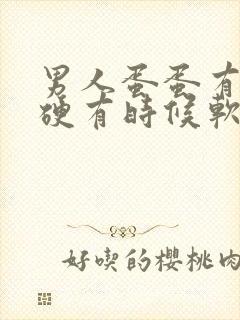 男人蛋蛋有
硬有時候軟
好喫的櫻桃肉